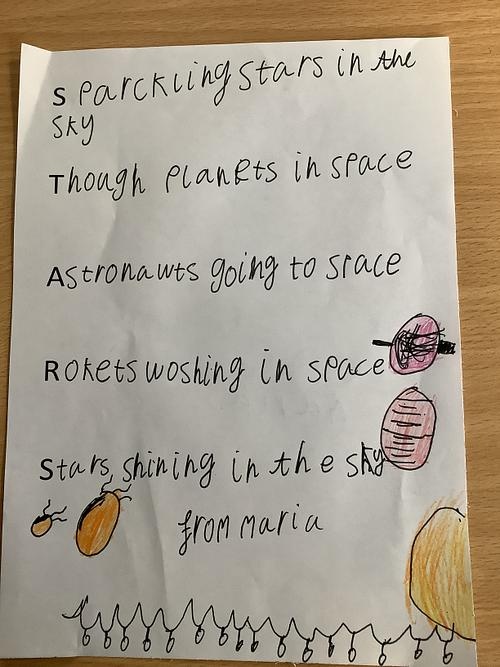 Sparckling stars in the
sky
Though planets in space
Astronawts going to space
Rokets woshing in space
Stars shining in the sky
from maria